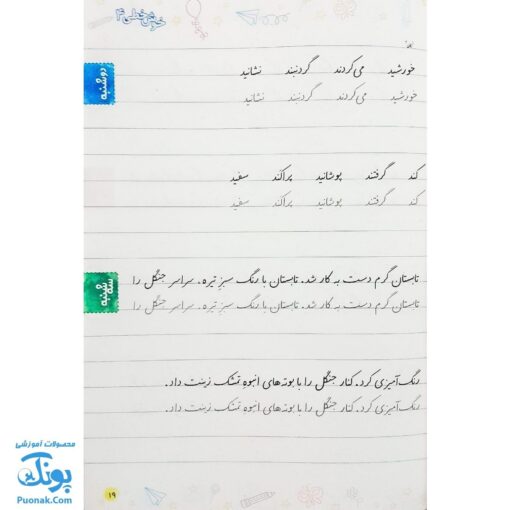 خوش خطی ۴
دوشنبه
خورشید می‌کردند گردنبند نشانید
خورشید می‌کردند گردنبند نشانید
کند گرفتند پوشانید پراکند سفید
کند گرفتند پوشانید پراکند سفید
سه شنبه
تابستان گرم دست به کار شد. تابستان با رنگ سبز تیره، سراسر جنگل را
تابستان گرم دست به کار شد. تابستان با رنگ سبز تیره، سراسر جنگل را
رنگ‌آمیزی کرد. کنار جنگل را با بوته‌های انبوه تمشک زینت داد.
رنگ‌آمیزی کرد. کنار جنگل را با بوته‌های انبوه تمشک زینت داد.
۱۹
محصولات آموزشی
پونک
Puonak.Com